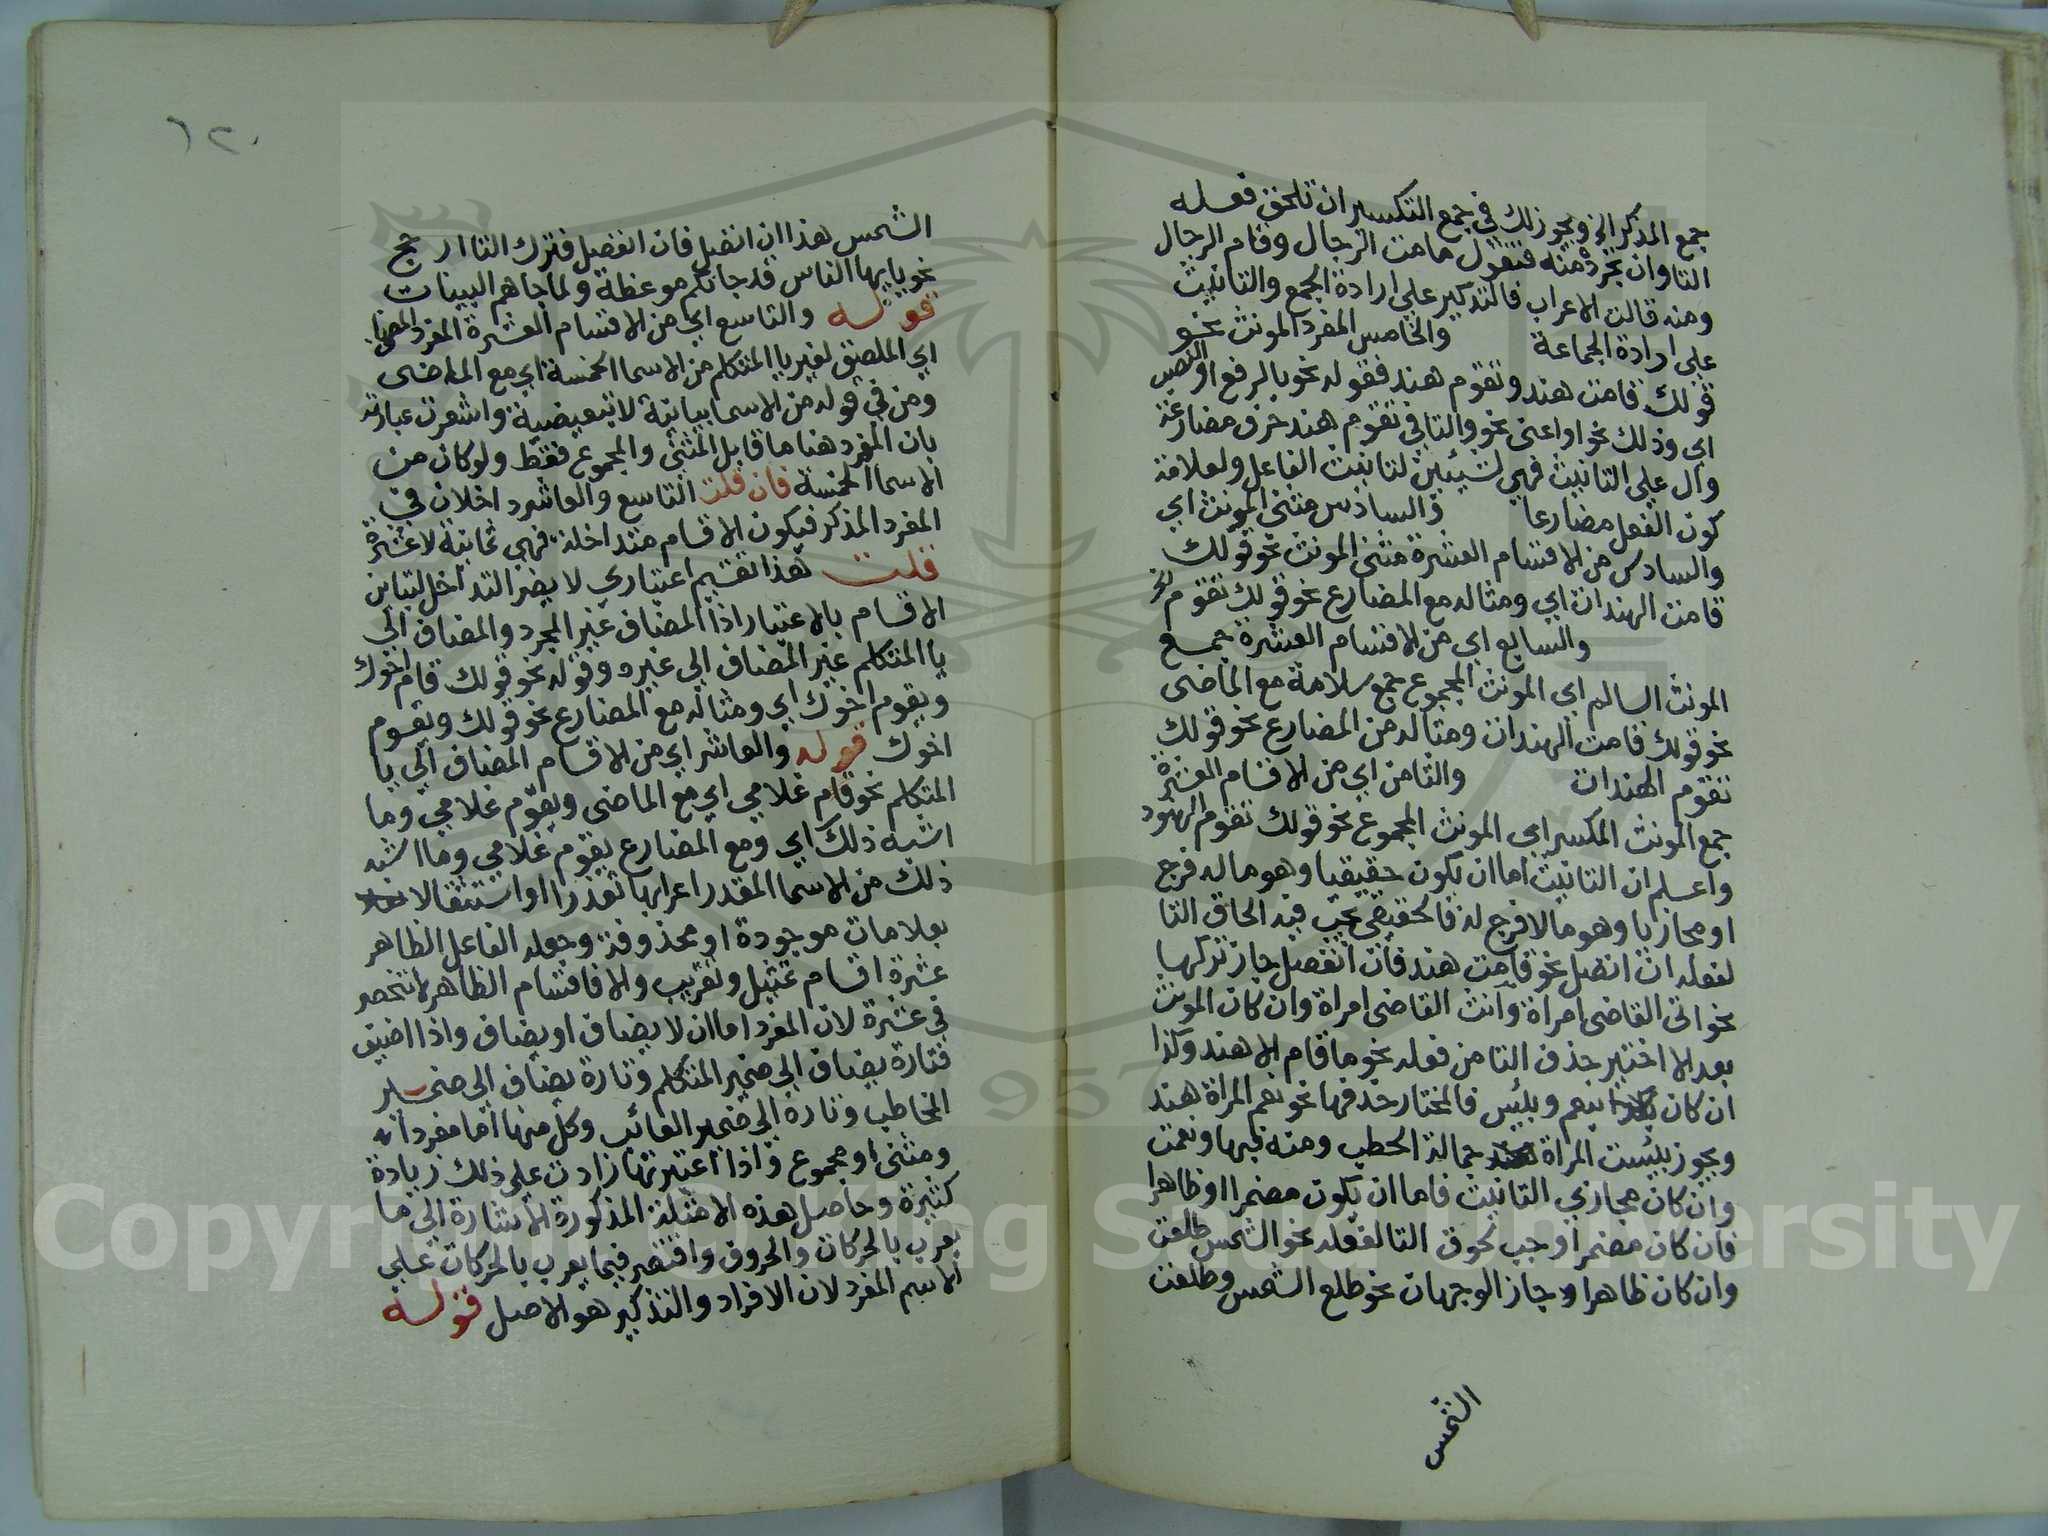 جمع المذكر الخ ويجوز ذلك في جمع التكسير ان تلحق فعله
التا وان تجرده منه فتقول قامت الرجال وقام الرجال
ومنه قالت الاعراب فالتذكير علي ارادة الجمع والتانيث
علي ارادة الجماعة والخامس المفرد المونث نحو
قولك قامت هند وتقوم هند فقوله نحو بالرفع او النصب
اي وذلك نحو او اعنى نحو والتا في تقوم هند حرف مضارعة
دال علي التانيث فهي لشيئين لتانيث الفاعل ولعلامة
كون الفعل مضارعا والسادس مثنى المونث اي
والسادس من الاقسام العشرة مثنى المونث نحو قولك
قامت الهندان اي ومثاله مع المضارع نحو قولك تقوم
والسابع اي من الاقسام العشرة جمع
المونث السالم اي المونث المجموع جمع سلامة مع الماضى
نحو قولك قامت الهندات ومثاله من المضارع نحو قولك
تقوم الهندات والثامن اي من الاقسام العشرة
جمع المونث المكسر اي المونث المجموع نحو قولك تقوم الهنود
واعلم ان التانيث اما ان يكون حقيقيا وهو ما له فرج
او مجازيا وهو ما لا فرج له فالحقيقي يجب فيه الحاق التا
لفعله ان اتصل نحو قامت هند فان انفصل جاز تركها
نحو اتى القاضى امراة واتت القاضى امراة وان كان المونث
بعد الا اختير حذف التا من فعله نحو ما قام الا هند وكذا
ان كان بنعم وبئس فالمختار حذفها نحو نعم المراة هند
ويجوز بئست المراة حمالة الحطب ومنه فبها ونعمت
وان كان مجازي التانيث فاما ان يكون مضمرا او ظاهرا
فان كان مضمرا وجب لحوق التا لفعله نحو الشمس طلعت
وان كان ظاهرا جاز الوجهان نحو طلع الشمس وطلعت
الشمس
١٢٠
الشمس هذا ان اتصل فان انفصل فترك التا ارجح
نحو يايها الناس قد جاتكم موعظة ولما جاهم البينات
قوله والتاسع اي من الاقسام العشرة المفرد المضاف
اي الملصق لغير يا المتكلم من الاسما الخمسة اي مع الماضى
ومن في قوله من الاسما بيانية لا تبعيضية واشعرت عبارته
بان المفرد هنا ما قابل المثنى والمجموع فقط ولو كان من
الاسما الخمسة فان قلت التاسع والعاشر داخلان في
المفرد المذكر فيكون الاقسام متداخلة فهي ثمانية لا عشرة
قلت هذا تقسيم اعتباري لا يضر التداخل لتباين
الاقسام بالاعتبار اذا المضاف غير المجرد والمضاف الي
يا المتكلم غير المضاف الي غيره وقوله نحو قولك قام اخوك
ويقوم اخوك اي ومثاله مع المضارع نحو قولك ويقوم
اخوك قوله والعاشر اي من الاقسام المضاف الي يا
المتكلم نحو قام غلامي اي مع الماضى ويقوم غلامي وما
اشبه ذلك اي ومع المضارع يقوم غلامي وما اشبه
ذلك من الاسما المقدر اعرابها تعذرا او استثقالا
بعلامات موجودة او محذوفة وجعله الفاعل الظاهر
عشرة اقسام تمثيل وتقريب والا فاقسام الظاهر لا تنحصر
في عشرة لان المفرد اما ان لا يضاف او يضاف واذا اضيف
فتارة يضاف الي ضمير المتكلم وتارة يضاف الي ضمير
المخاطب وتارة الي ضمير الغائب وكل منها اما مفردا
ومثنى او مجموع واذا اعتبرتها زادت علي ذلك زيادة
كثيرة وحاصل هذه الامثلة المذكورة الاشارة الي ما
يعرب بالحركات والحروف واقتصر فيما يعرب بالحركات علي
الاسم المفرد لان الافراد والتذكير هو الاصل قوله
Copyright © King Saud University
1957